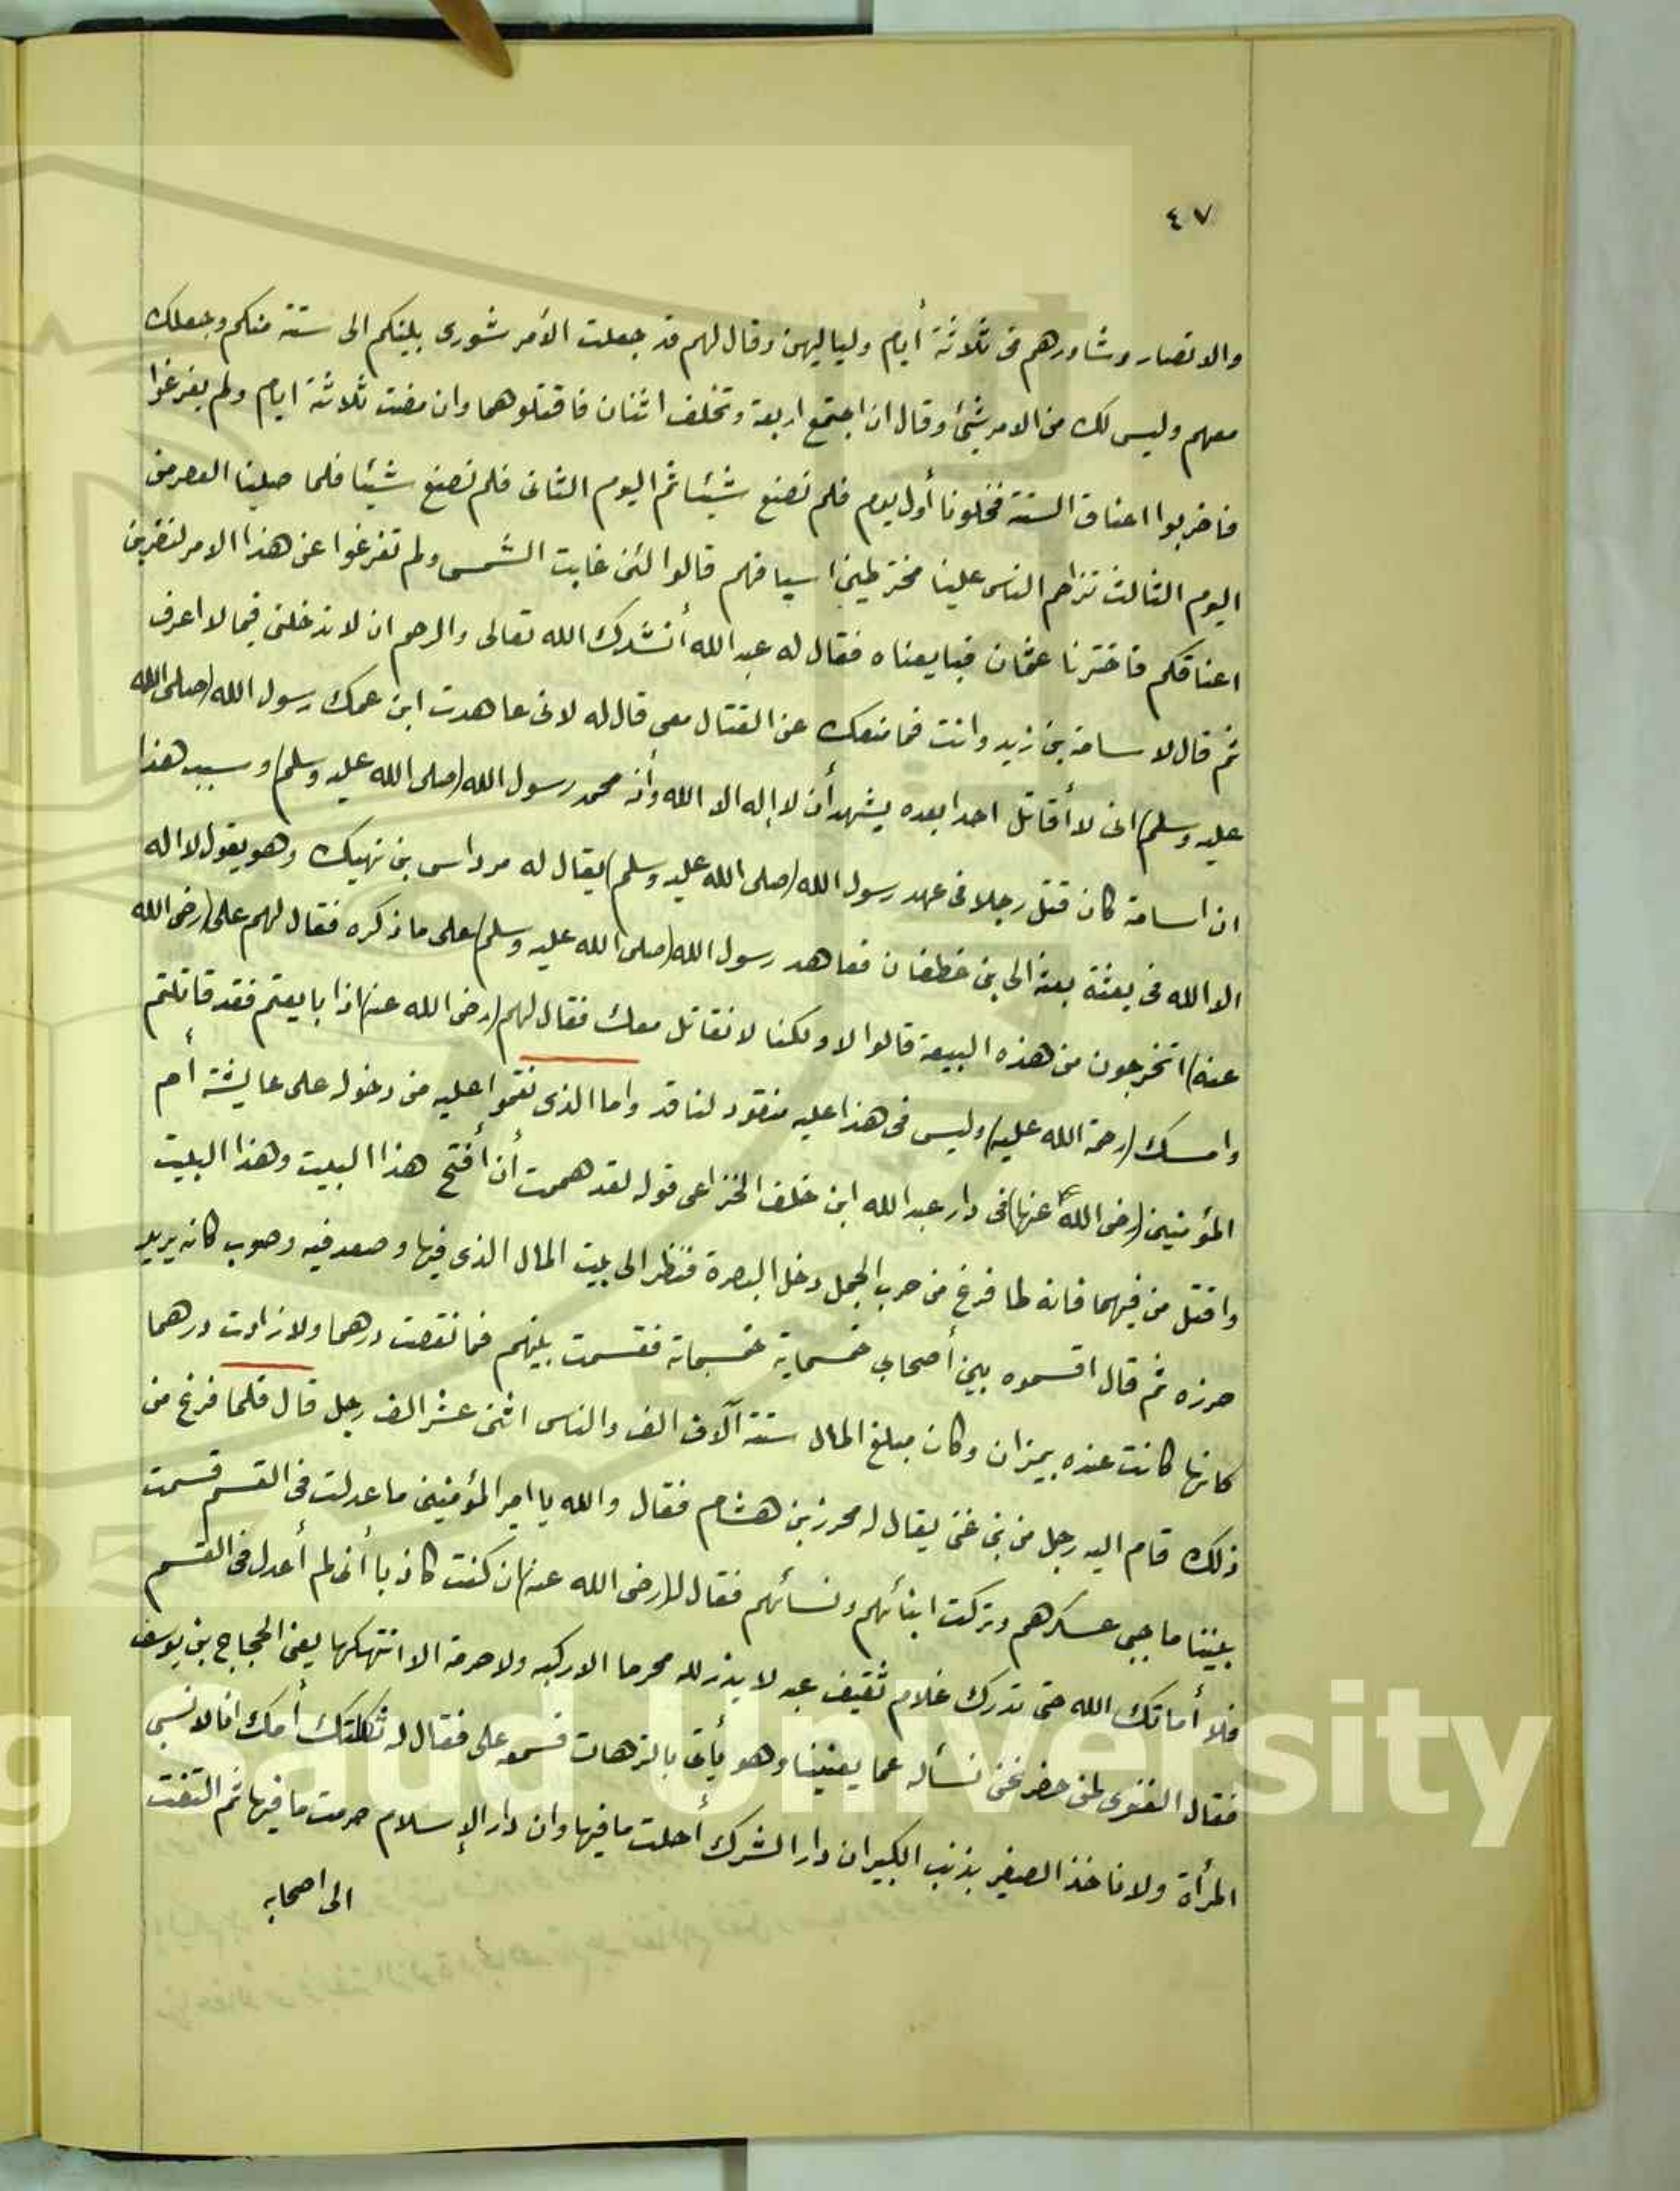 ٤٧
والانصار وشاورهم فى ثلاثة أيام ولياليهن وقال لهم قد جعلت الأمر شورى بينكم الى ستة منكم وجعلك
معهم وليس لك من الامر شئ وقال ان اجتمع اربعة وتخلف اثنان فاقتلوهما وان مضت ثلاثة ايام ولم يفرغوا
فاضربوا اعناق الستة فخلونا أول يوم فلم نصنع شيئا ثم اليوم الثانى فلم نصنع شيئا فلما صلينا العصر من
اليوم الثالث تزاحم الناس علينا مخترطين اسيافهم قالوا لئن غابت الشمس ولم تفرغوا عن هذا الامر لنضربن
اعناقكم فاخترنا عثمان فبايعناه فقال له عبد الله أنشدك الله تعالى والرحم ان لا تدخلنى فيما لا اعرف
ثم قال لاسامة بن زيد وانت فما منعك عن القتال معى قال له لانى عاهدت ابن عمك رسول الله (صلى الله
عليه وسلم) انى لا أقاتل احدا بعده يشهد أن لا إله الا الله وأن محمد رسول الله (صلى الله عليه وسلم) وسبب هذا
ان اسامة كان قتل رجلا فى عهد رسول الله (صلى الله عليه وسلم) يقال له مرداس بن نهيك وهو يقول لا اله
الا الله فى بعثة بعثه الى بنى غطفان فعاهد رسول الله (صلى الله عليه وسلم) على ما ذكره فقال لهم على (رضى الله
عنه) اتخرجون من هذه البيعة قالوا لا ولكنا لا نقاتل معك فقال لهم (رضى الله عنه) اذا بايعتم فقد قاتلتم
وامسك (رحمة الله عليه) وليس فى هذا عليه منقود لناقد واما الذى نقموا عليه من دخوله على عايشة أم
المؤمنين (رضى الله عنها) فى دار عبد الله ابن خلف الخزاعى قوله لقد هممت أن أفتح هذا البيت وهذا البيت
واقتل من فيهما فانه لما فرغ من حرب الجمل دخل البصرة فنظر الى بيت المال الذى فيها وصعد فيه وصوب كانه يريد
حرزه ثم قال اقسموه بين أصحابى خمسماية خمسماية فقسمت بينهم فما نقصت درهما ولا زادت درهما
كانها كانت عنده بميزان وكان مبلغ المال ستة آلاف الف والناس اثنى عشر الف رجل قال فلما فرغ من
ذلك قام اليه رجل من بنى غنى يقال له محرز بن هشام فقال والله يا امير المؤمنين ما عدلت فى القسم قسمت
بيننا ما جبى عسكرهم وتركت ابنائهم ونسائهم فقال له (رضى الله عنه) ان كنت كاذبا أنى لم أعدل فى القسم
فلا أماتك الله حتى تدرك غلام ثقيف عبد لا يذر لله محرما الا ركبه ولا حرمة الا انتهكها يعنى الحجاج بن يوسف
فقال الغنوى لمن حضر نحن نسأله عما يعنينا وهو يأتى بالترهات فسمعه على فقال له ثكلتك أمك انا لا نسبى
المرأة ولا ناخذ الصغير بذنب الكبير ان دار الشرك أحلت ما فيها وان دار الإسلام حرمت ما فيها ثم التفت
الى اصحابه
King Saud University